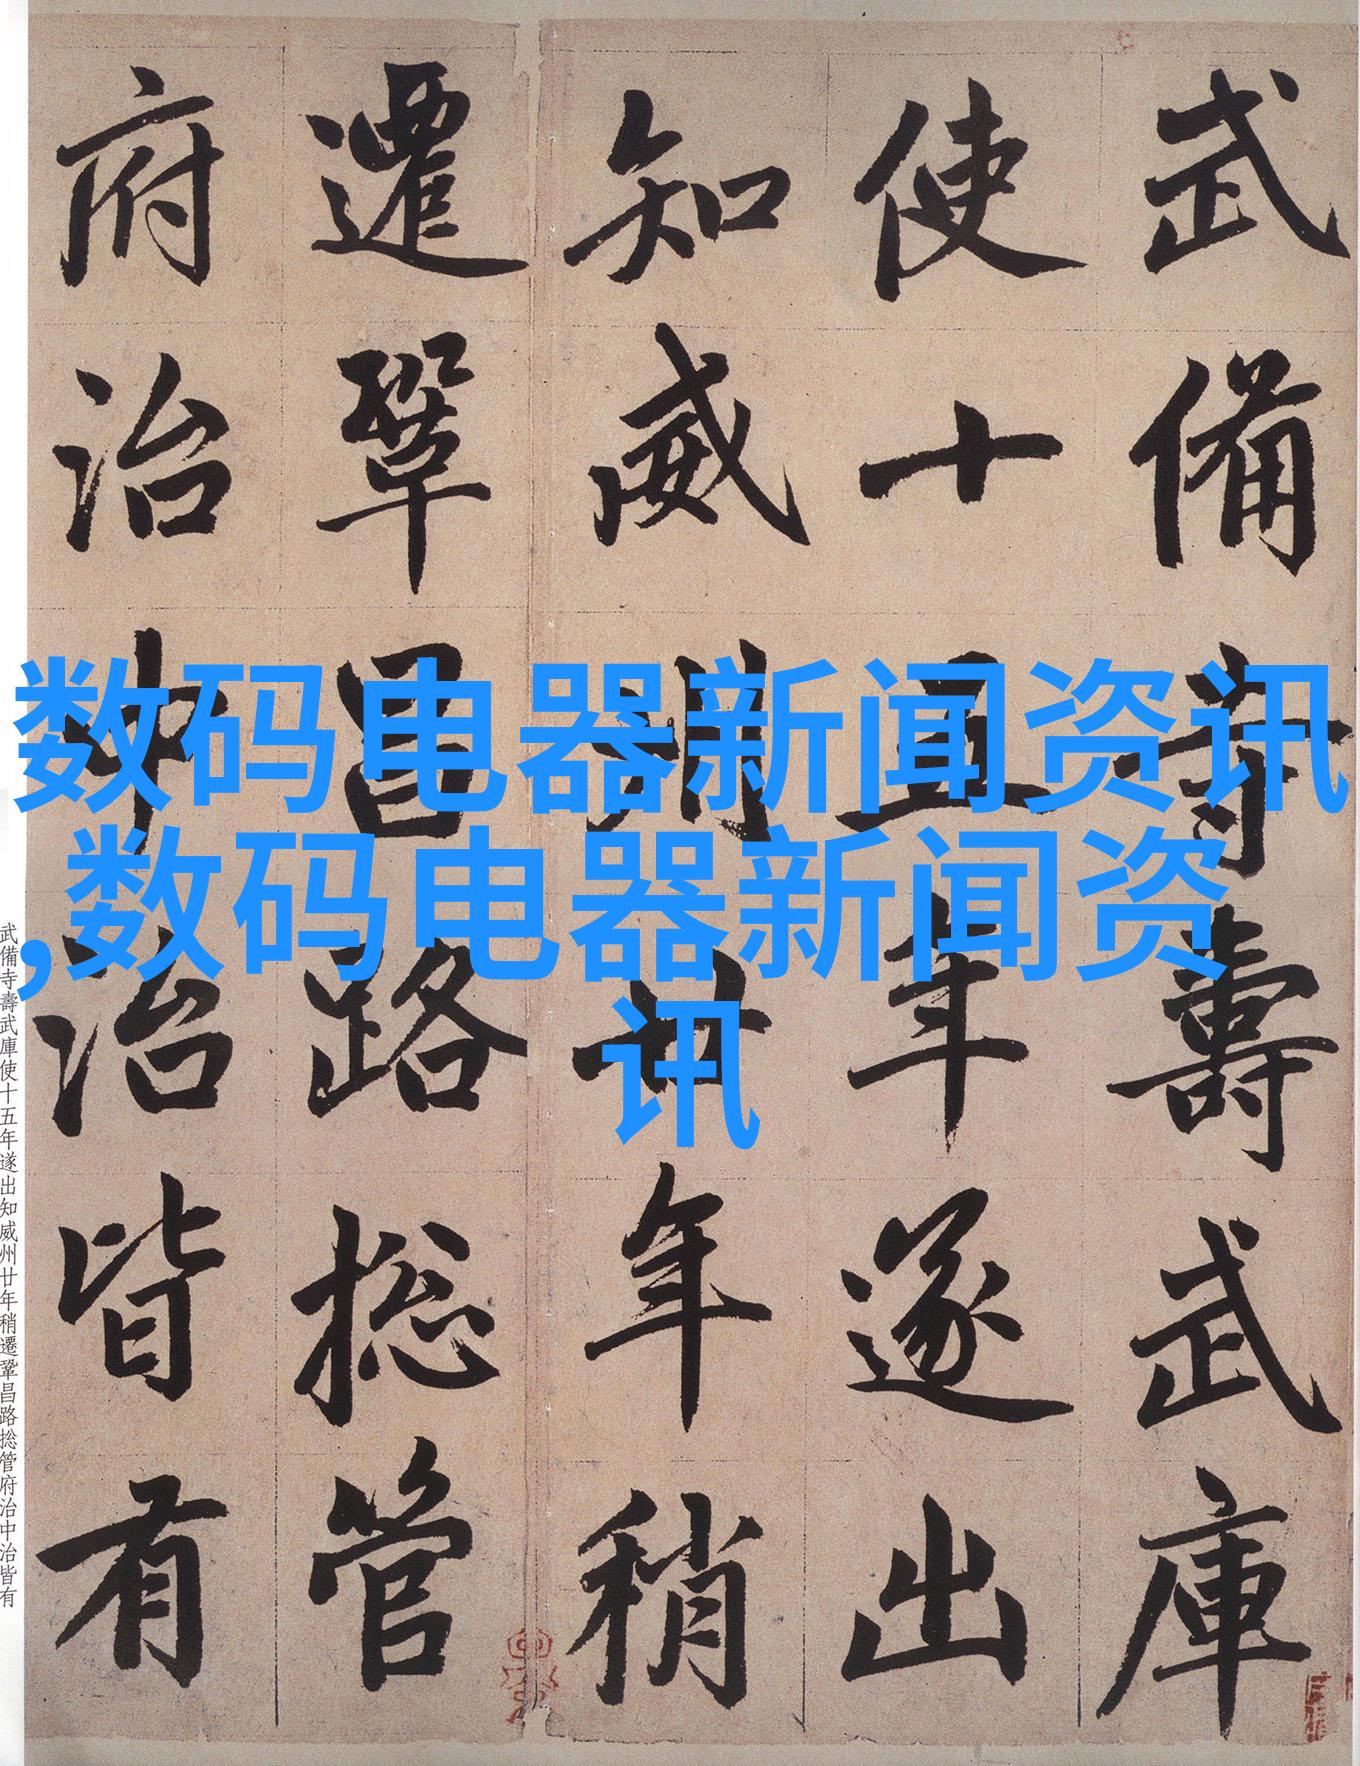 武備寺壽武庫
使十五年遂出
知威州廿年稍
遷鞏昌路捴管
府治中治皆有
数码电器新闻资讯
,数码电器新闻资
讯
武備寺壽武庫使十五年遂出知威州廿年稍遷鞏昌路捴管府治中治皆有